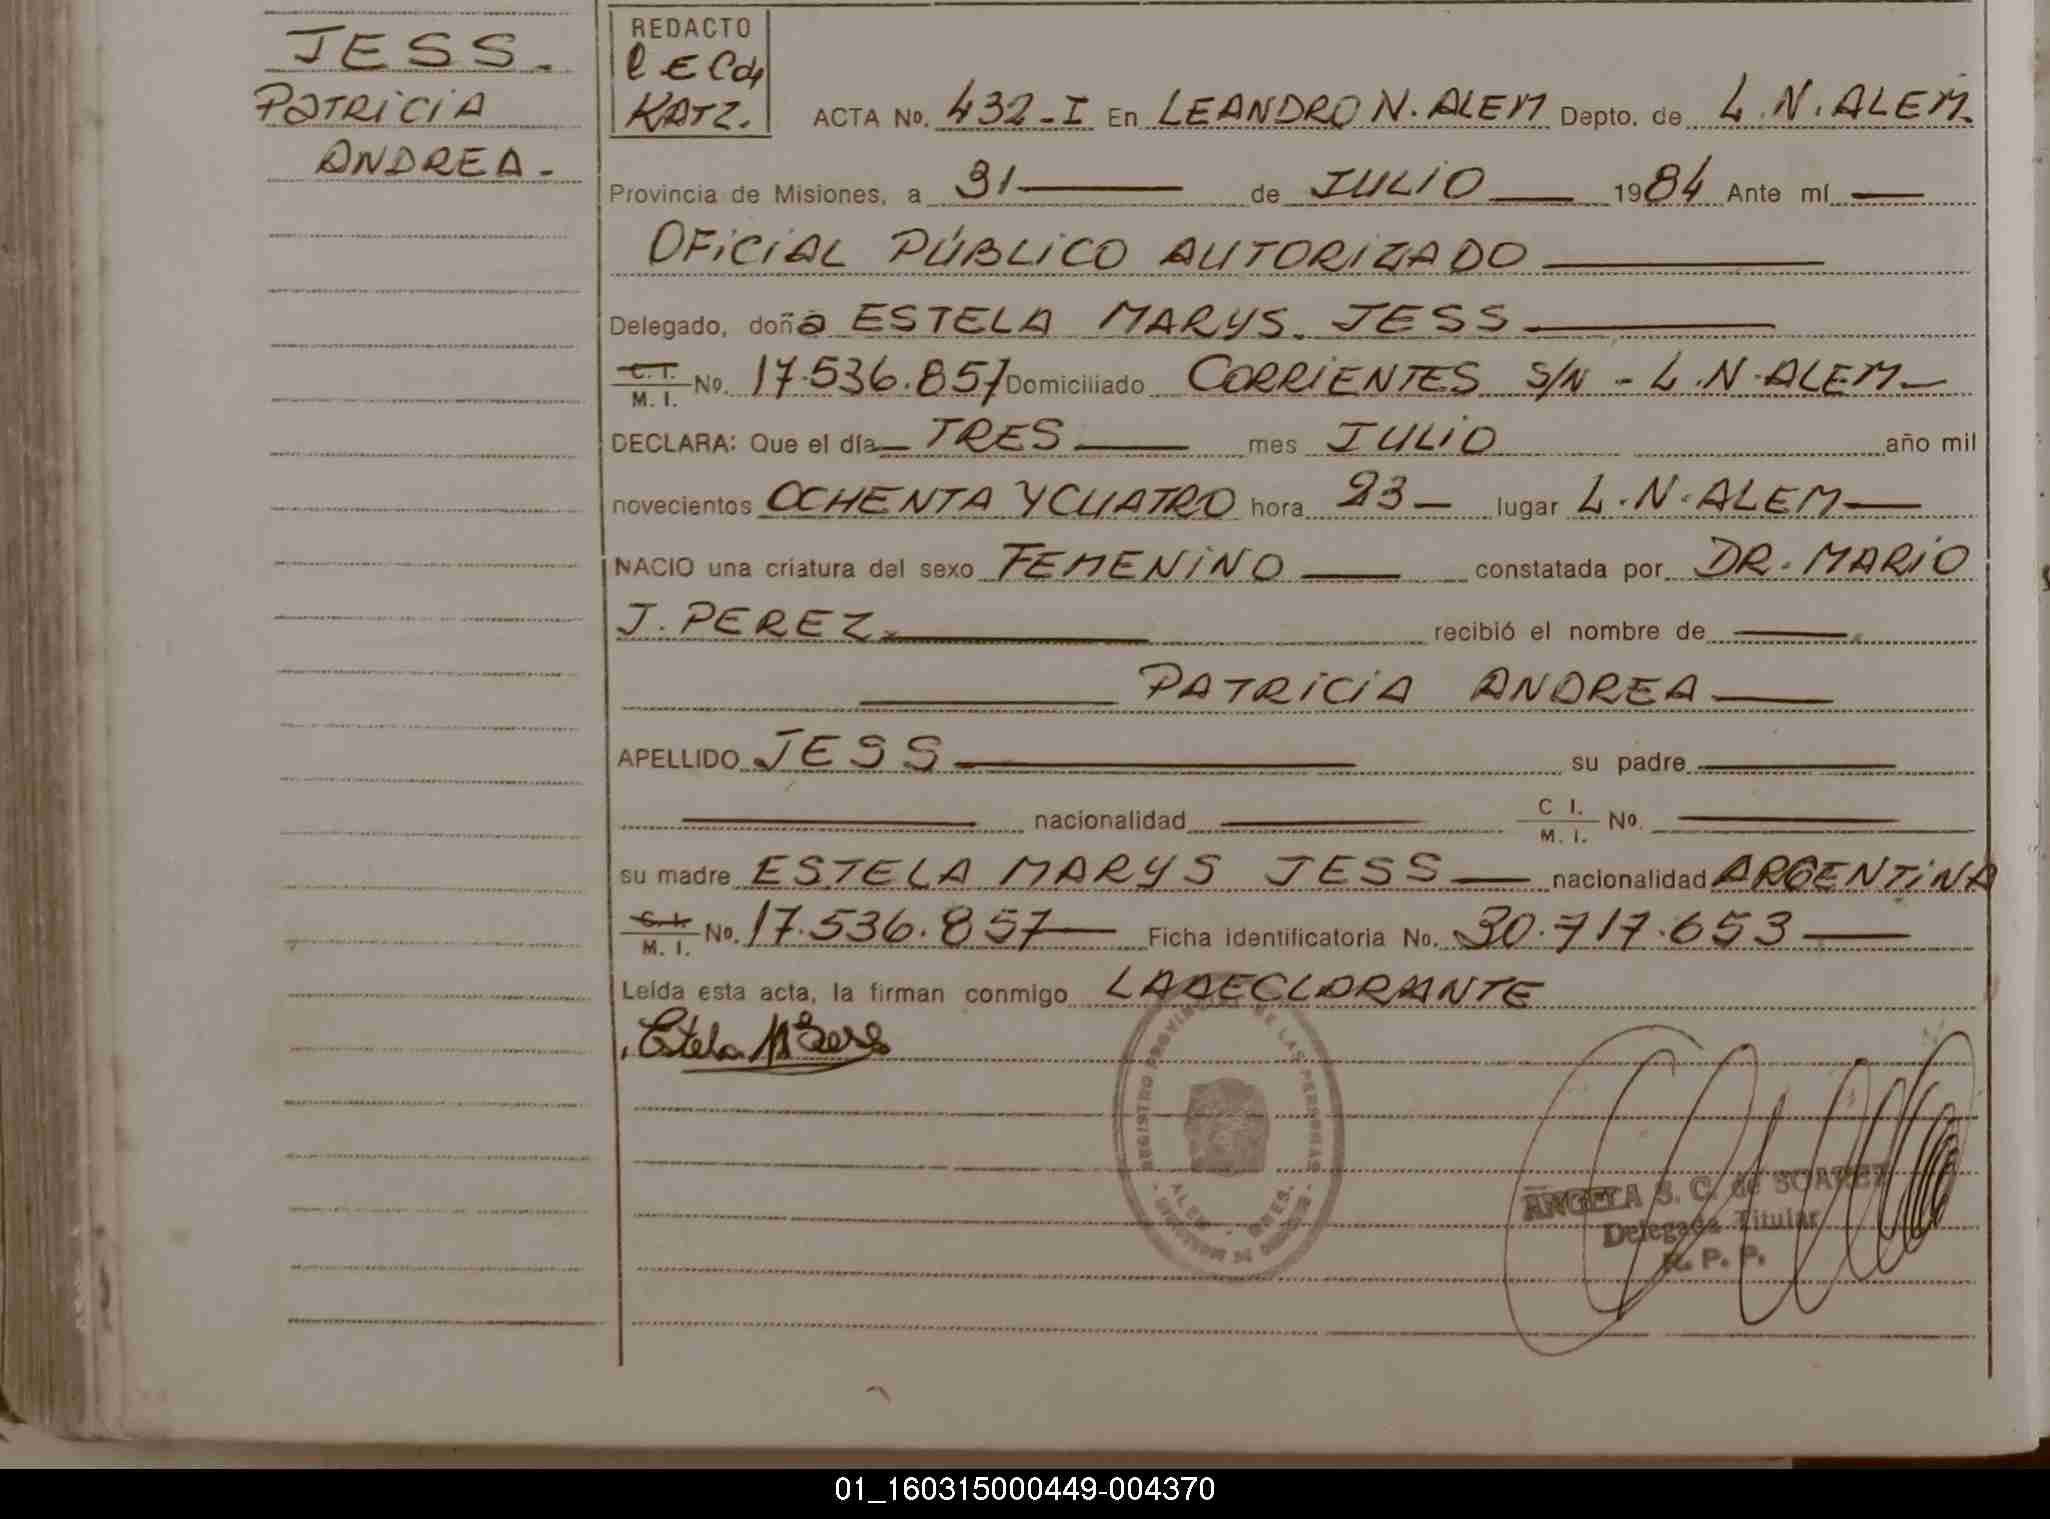 JESS.
PATRICIA
ANDREA.
REDACTO
KATZ.
ACTA No. 432-I En LEANDRO N. ALEM Depto. de L.N. ALEM.
Provincia de Misiones, a 31 de JULIO 1984 Ante mí
OFICIAL PÚBLICO AUTORIZADO
Delegado, doña ESTELA MARYS JESS
C. I. M. I. No. 17.536.857 Domiciliado CORRIENTES S/N - L.N. ALEM
DECLARA: Que el día TRES mes JULIO año mil
novecientos OCHENTA Y CUATRO hora 23 lugar L.N. ALEM
NACIO una criatura del sexo FEMENINO constatada por DR. MARIO
J. PEREZ. recibió el nombre de
PATRICIA ANDREA
APELLIDO JESS su padre
nacionalidad C I. M. I. No.
su madre ESTELA MARYS JESS nacionalidad ARGENTINA
C. I. M. I. No. 17.536.857 Ficha identificatoria No. 30.717.653
Leída esta acta, la firman conmigo LA DECLARANTE
Estela M Jess
REGISTRO PROVINCIAL DE LAS PERSONAS
ALEM - MNES.
ANGELA S. C. de SOAREZ
Delegada Titular
R. P. P.
01_160315000449-004370